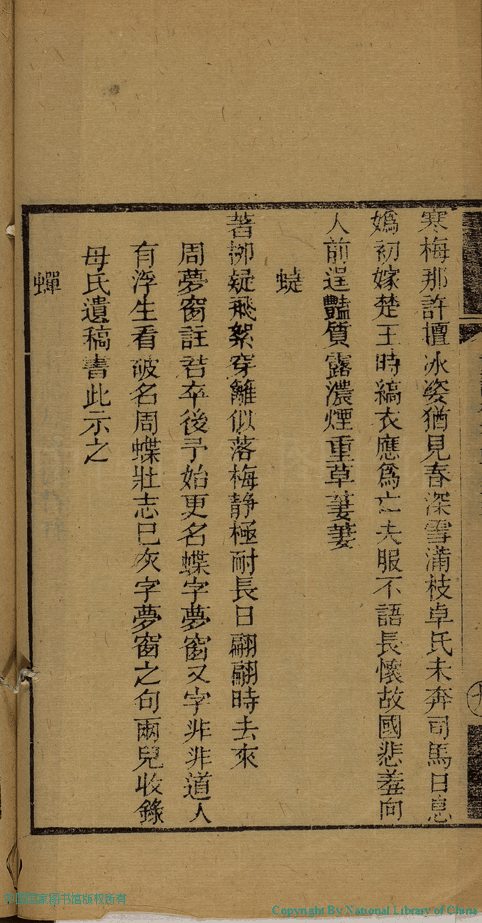 寒梅那許擅冰姿猶見春深雪滿枝卓氏未奔司馬日息
媯初嫁楚王時縞衣應為亡夫服不語長懷故國悲羞向
人前逞豔質露濃煙重草萋萋
蜨
著
疑飛絮穿籬似落梅静極耐長日翩翩時去來
周夢窗註君卒後予始更名蝶字夢窗又字非非道人
有浮生看破名周蝶壯志已灰字夢窗之句兩兒收錄
母氏遺稿書此示之
蟬
中国国家图书馆版权所有
Copyright By National Library of China